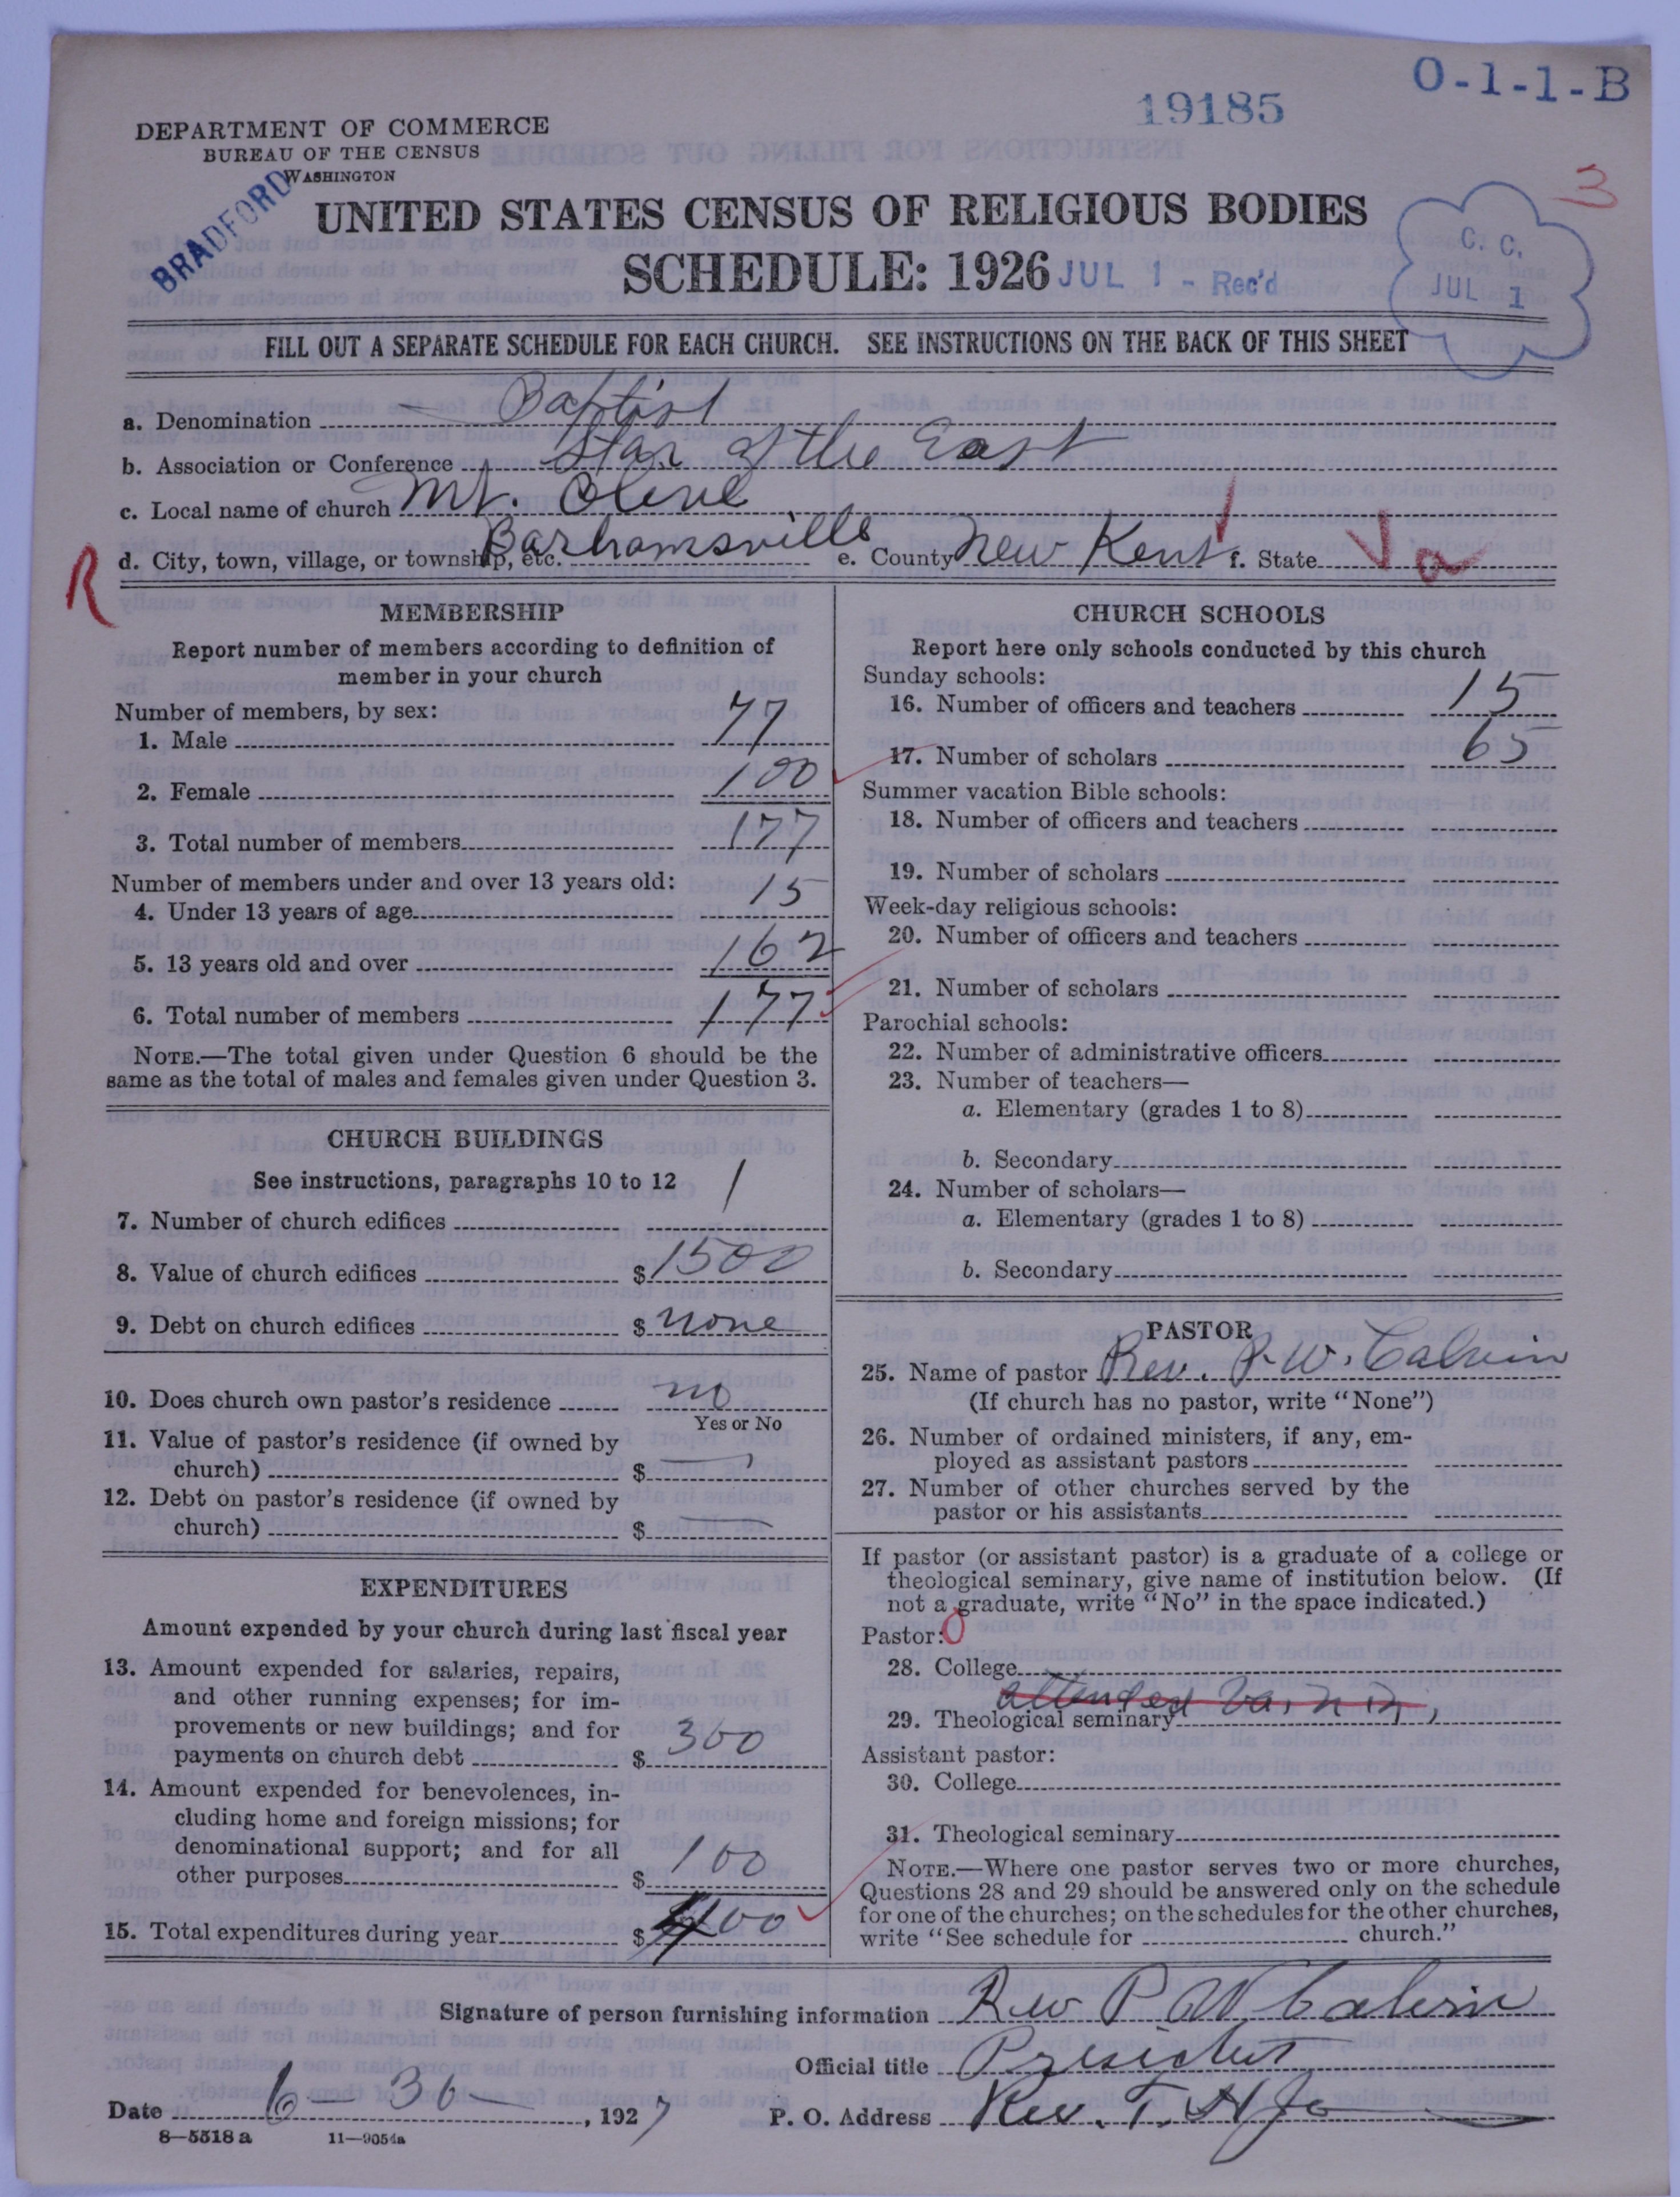 O-1-1-B
19185
DEPARTMENT OF COMMERCE
BUREAU OF THE CENSUS
WASHINGTON
BRADFORD
3
UNITED STATES CENSUS OF RELIGIOUS BODIES
SCHEDULE: 1926
JUL 1 - Rec'd
C. C.
JUL 1
FILL OUT A SEPARATE SCHEDULE FOR EACH CHURCH. SEE INSTRUCTIONS ON THE BACK OF THIS SHEET
a. Denomination Baptist
b. Association or Conference Star of the East
c. Local name of church Mt. Olive
R d. City, town, village, or township, etc. Barhamsville e. County New Kent f. State Va
MEMBERSHIP
Report number of members according to definition of
member in your church
Number of members, by sex:
1. Male 77
2. Female 100
3. Total number of members 177
Number of members under and over 13 years old:
4. Under 13 years of age 15
5. 13 years old and over 162
6. Total number of members 177
NOTE.—The total given under Question 6 should be the
same as the total of males and females given under Question 3.
CHURCH BUILDINGS
See instructions, paragraphs 10 to 12
7. Number of church edifices 1
8. Value of church edifices $ 1500
9. Debt on church edifices $ none
10. Does church own pastor's residence no
Yes or No
11. Value of pastor's residence (if owned by
church) $
12. Debt on pastor's residence (if owned by
church) $ —
EXPENDITURES
Amount expended by your church during last fiscal year
13. Amount expended for salaries, repairs,
and other running expenses; for im-
provements or new buildings; and for
payments on church debt $ 300
14. Amount expended for benevolences, in-
cluding home and foreign missions; for
denominational support; and for all
other purposes $ 100
15. Total expenditures during year $ 400
CHURCH SCHOOLS
Report here only schools conducted by this church
Sunday schools:
16. Number of officers and teachers 15
17. Number of scholars 65
Summer vacation Bible schools:
18. Number of officers and teachers
19. Number of scholars
Week-day religious schools:
20. Number of officers and teachers
21. Number of scholars
Parochial schools:
22. Number of administrative officers
23. Number of teachers—
a. Elementary (grades 1 to 8)
b. Secondary
24. Number of scholars—
a. Elementary (grades 1 to 8)
b. Secondary
PASTOR
25. Name of pastor Rev. P. W. Calvin
(If church has no pastor, write "None")
26. Number of ordained ministers, if any, em-
ployed as assistant pastors
27. Number of other churches served by the
pastor or his assistants
If pastor (or assistant pastor) is a graduate of a college or
theological seminary, give name of institution below. (If
not a graduate, write "No" in the space indicated.)
Pastor: 0
28. College
attended Va.
29. Theological seminary
Assistant pastor:
30. College
31. Theological seminary
NOTE.—Where one pastor serves two or more churches,
Questions 28 and 29 should be answered only on the schedule
for one of the churches; on the schedules for the other churches,
write "See schedule for church."
Signature of person furnishing information Rev P W Calvin
Official title
Date 6 - 30 , 1927 P. O. Address Rev. T. H.
8—5518 a 11—9054a